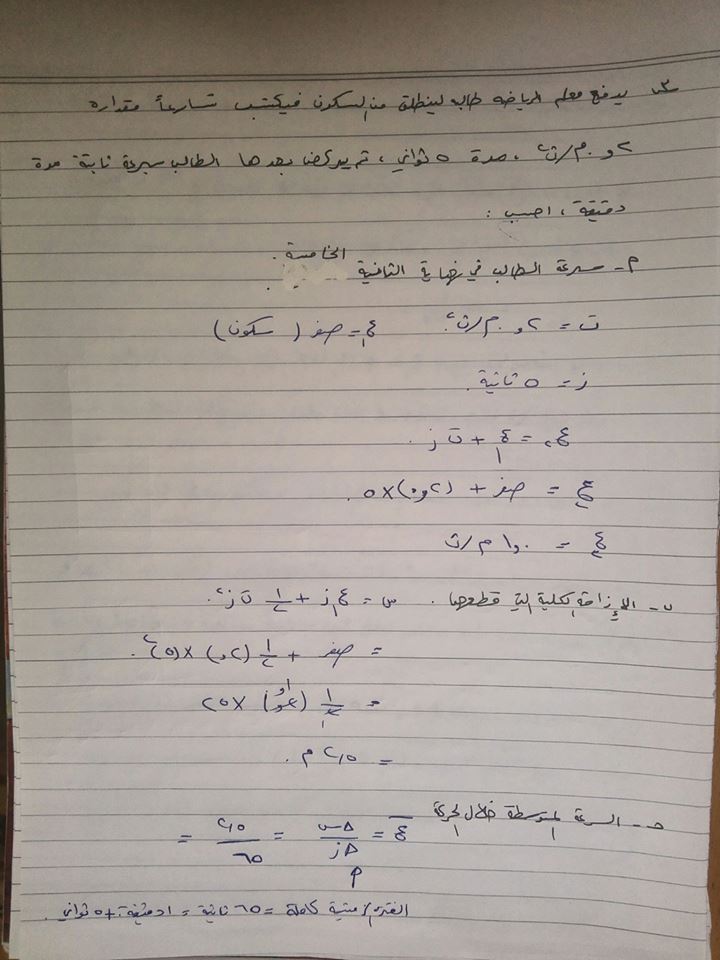 س٣ يدفع معلم الرياضه طالبه لينطلق من السكون فيكتسب تسارعاً مقداره
٢و. م/ث٢ ، مدة ٥ ثواني ، ثم يركض بعدها الطالب بسرعة ثابتة مدة
دقيقة ، احسب :
أ- سرعة الطالب في نهاية الثانية الخامسة .
ت = ٢و. م/ث٢ ع١ = صفر (سكون)
ز = ٥ ثانية .
ع٢ = ع١ + ت ز .
ع٢ = صفر + (٢و٠) × ٥ .
ع٢ = ٠و١ م/ث
ب- الإزاحة الكلية التي قطعها . س = ع١ ز + ١/٢ ت ز٢ .
= صفر + ١/٢ (٢و) × (٥)٢ .
= ١/٢ (٢و) ١و × ٢٥
= ٢٫٥ م .
ح- السرعة المتوسطة خلال الحركة ع = Δس/Δز = ٢٫٥/٦٥ =
الفترة الزمنية كاملة = ٦٥ ثانية = ١ دقيقة + ٥ ثواني .